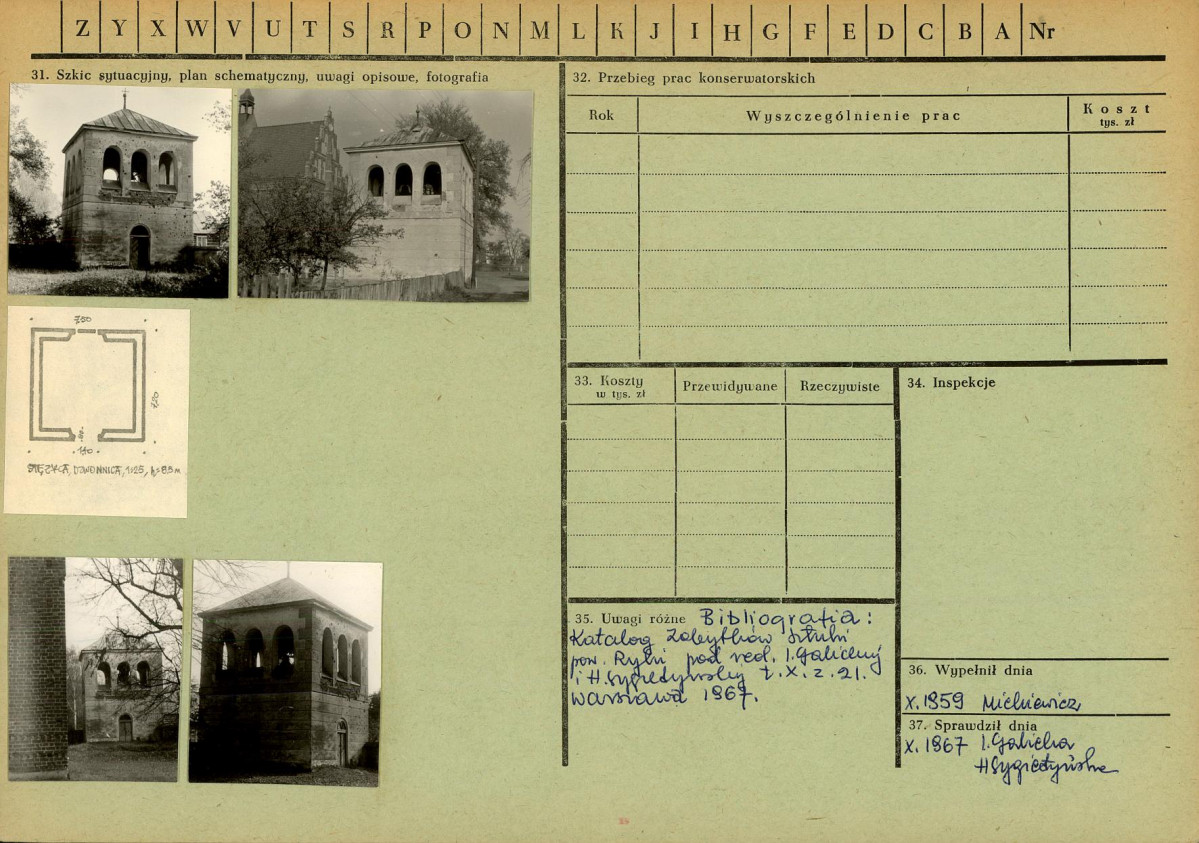 Z Y X W V U T S R P O N M L K J I H G F E D C B A Nr
31. Szkic sytuacyjny, plan schematyczny, uwagi opisowe, fotografia
7,50
7,50
1,10
STĘŻYCA, DZWONNICA, 1:25, h=8,5m
32. Przebieg prac konserwatorskich
Rok Wyszczególnienie prac Koszt
tys. zł
33. Koszty Przewidywane Rzeczywiste
w tys. zł
34. Inspekcje
35. Uwagi różne Bibliografia:
Katalog Zabytków Sztuki
pow. Ryki pod red. I. Galickiej
i H. Sygietyńskiej t. X. z. 21.
Warszawa 1967.
36. Wypełnił dnia
X. 1959 Mickiewicz
37. Sprawdził dnia
X. 1967 I. Galicka
H Sygietyńska